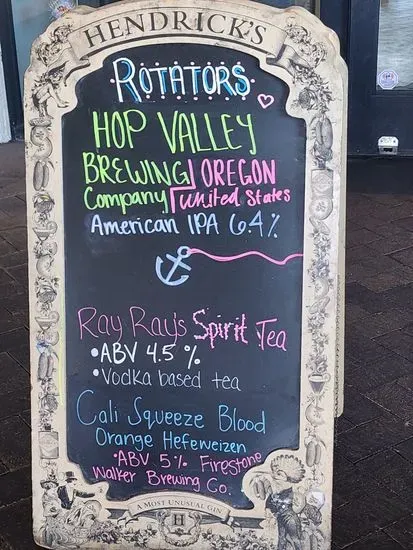 HENDRICK'S
ROTATORS
HOP VALLEY
BREWING OREGON
Company United States
American IPA 6.4%
Ray Ray's Spirit Tea
•ABV 4.5 %
•Vodka based tea
Cali Squeeze Blood
Orange Hefeweizen
•ABV 5% Firestone
Walker Brewing Co.
A MOST UNUSUAL GIN
H